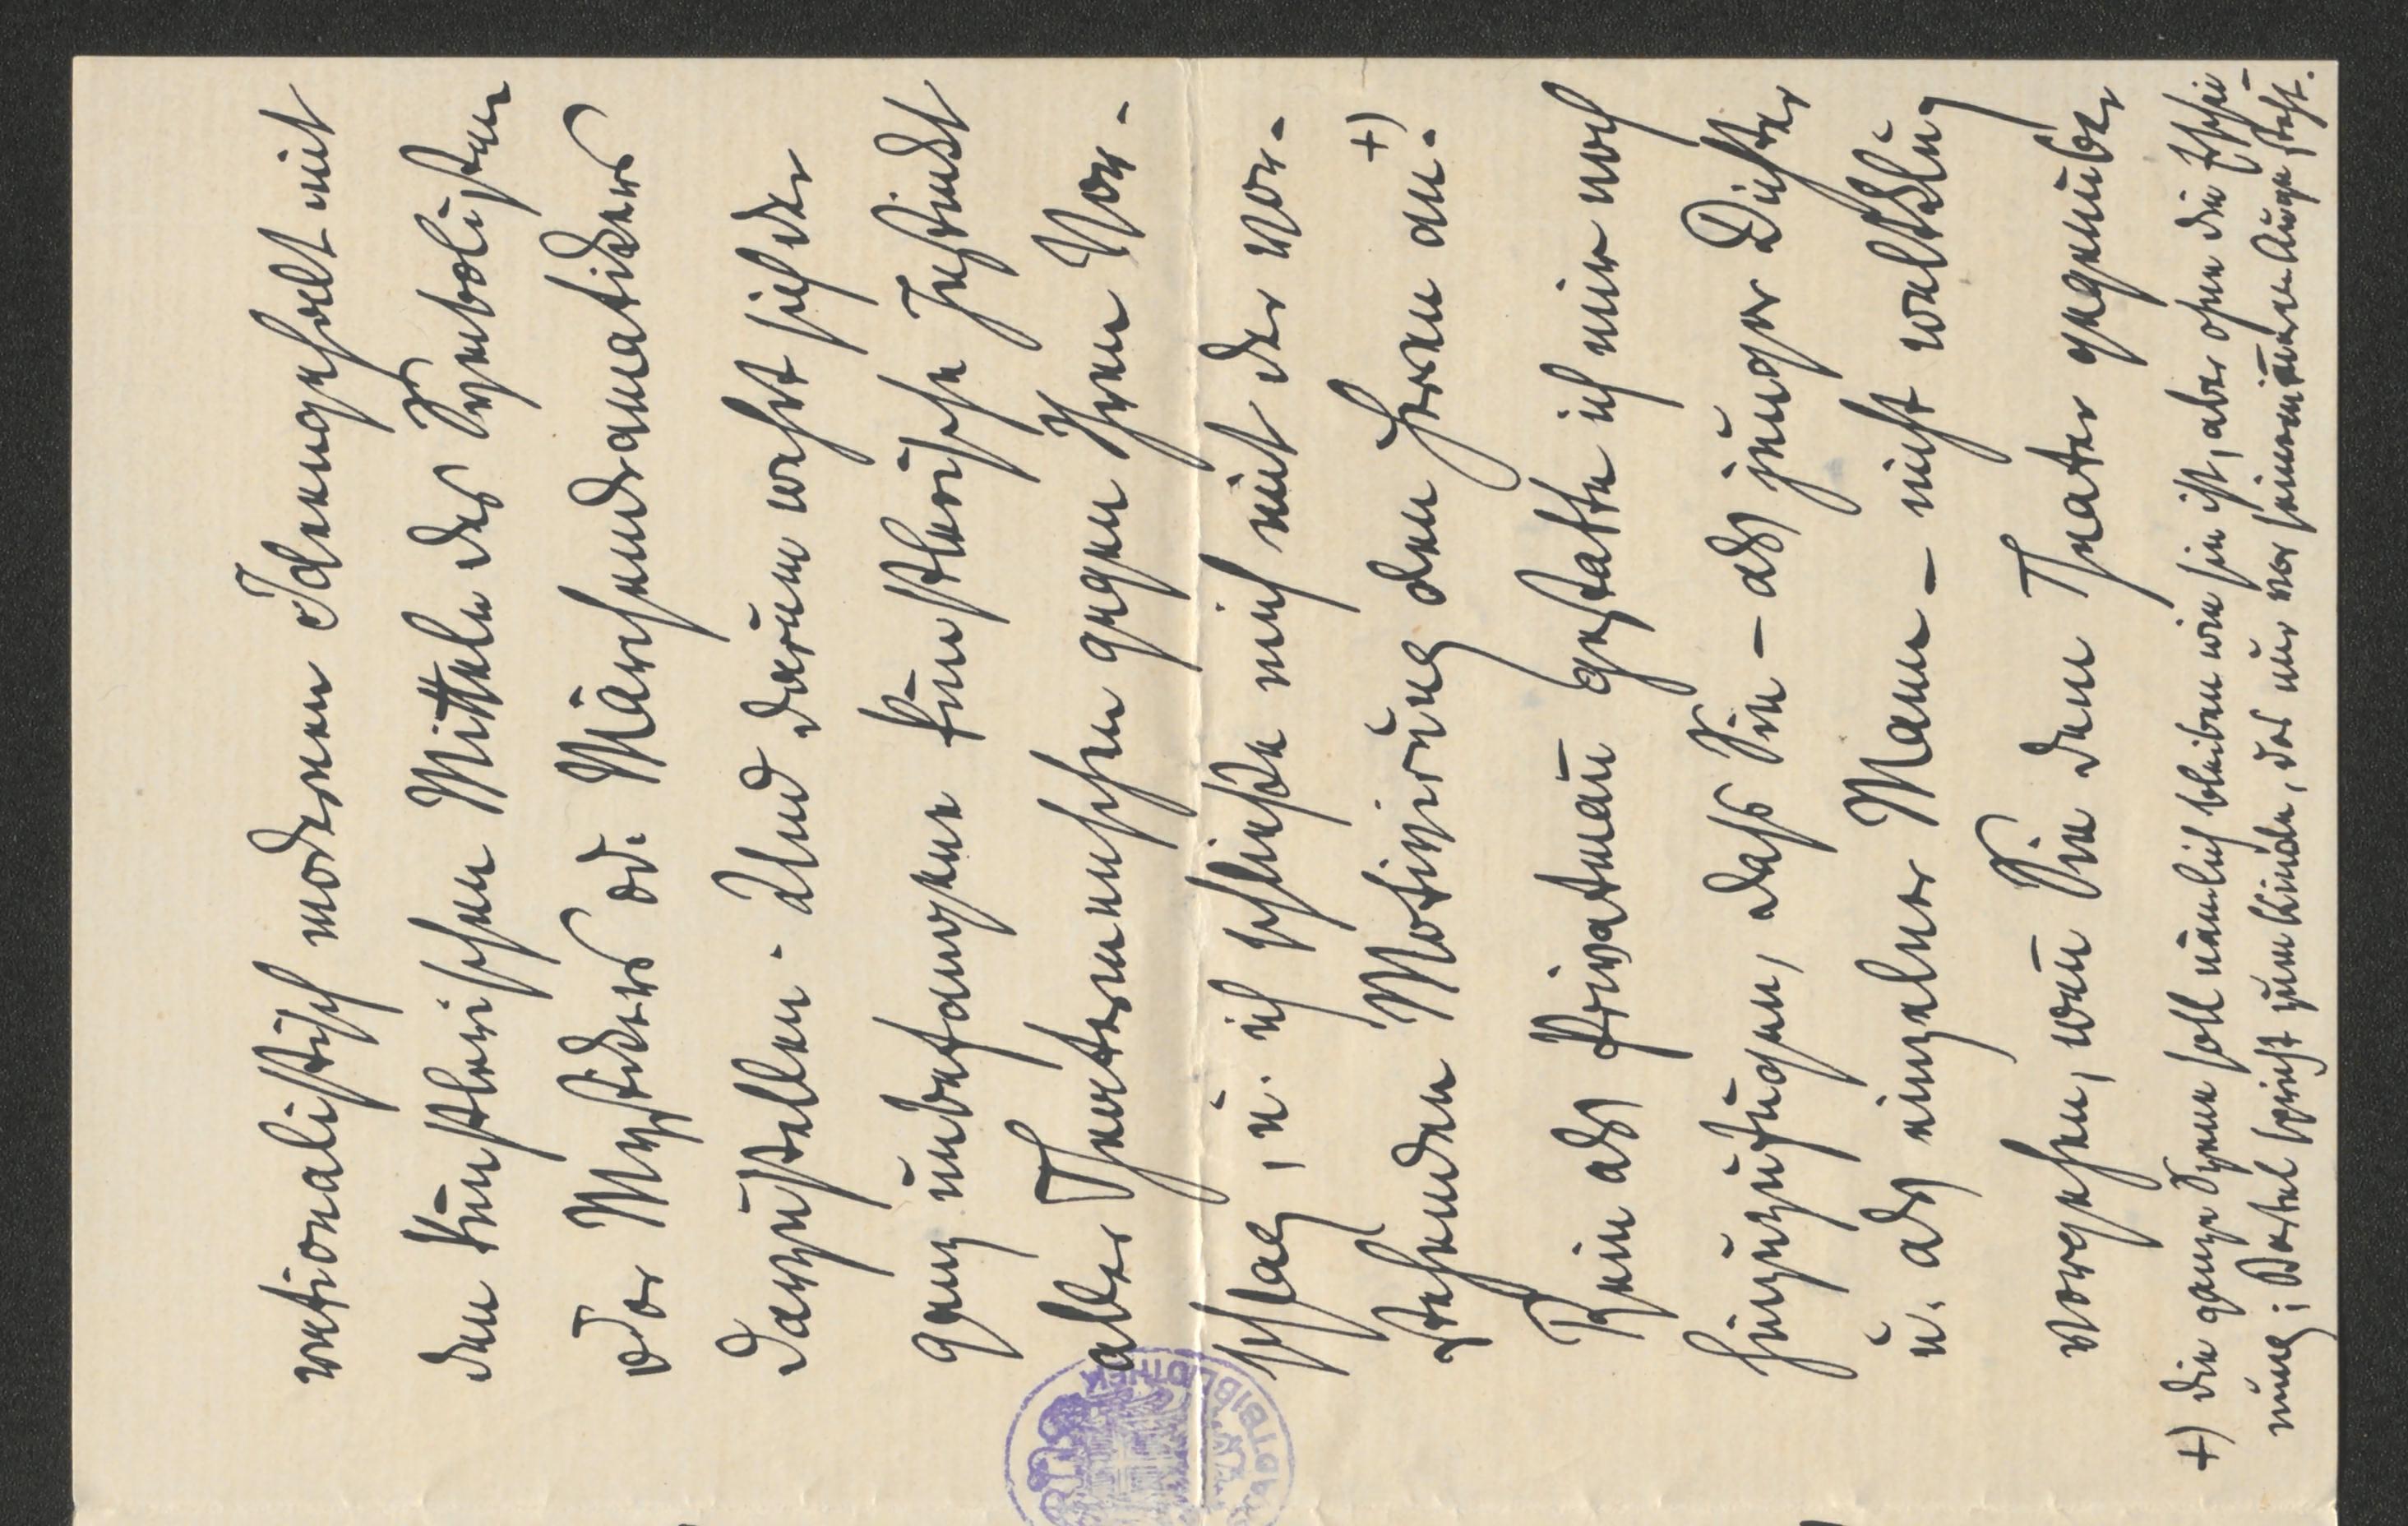 rationalistisch modernen Ideengehalt mit
den künstlerischen Mitteln des Symbolisten
oder Mystikers od. Märchendramatikers
darzustellen - Und darum wehrt sich der
ganz unbefangene künstlerische Instinkt
aller Theatermenschen gegen Ihren Vor-
schlag, u. ich schließe mich mit der vor-
stehenden Motivirung den Herren an. +)
Rein als Privatmann gestatte ich mir noch
hinzuzufügen, dass Sie – als junger Dichter
u. als einzelner Mann – nicht wohl klug
vorgehen, wenn Sie dem Theater gegenüber
+) die ganze Szene soll nämlich bleiben wie sie ist, aber ohne die Erschei-
nung; Bartel spricht zum Kinde, das nur vor seinem inneren Auge steht.
BIBLIOTHEK